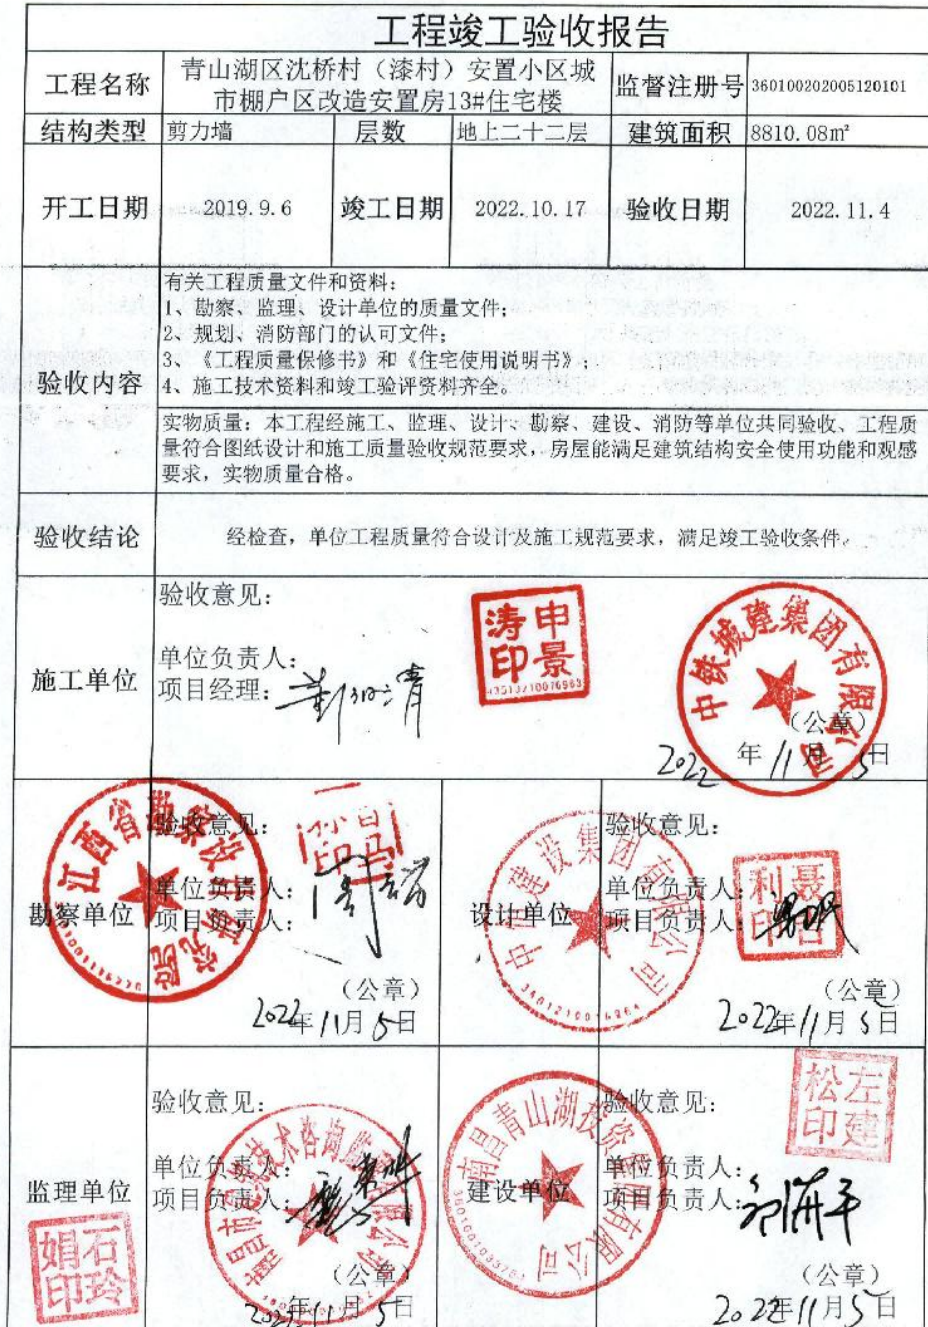 工程竣工验收报告
工程名称
青山湖区沈桥村（漆村）安置小区城
市棚户区改造安置房13#住宅楼
监督注册号
360100202005120101
结构类型
剪力墙
层数
地上二十二层
建筑面积
8810.08㎡
开工日期
2019.9.6
竣工日期
2022.10.17
验收日期
2022.11.4
验收内容
有关工程质量文件和资料：
1、勘察、监理、设计单位的质量文件；
2、规划、消防部门的认可文件；
3、《工程质量保修书》和《住宅使用说明书》；
4、施工技术资料和竣工验评资料齐全。
实物质量：本工程经施工、监理、设计、勘察、建设、消防等单位共同验收、工程质
量符合图纸设计和施工质量验收规范要求，房屋能满足建筑结构安全使用功能和观感
要求，实物质量合格。
验收结论
经检查，单位工程质量符合设计及施工规范要求，满足竣工验收条件。
施工单位
验收意见：
单位负责人：
项目经理：
申景涛印
中铁城建集团有限公司
（公章）
2022年11月5日
勘察单位
验收意见：
单位负责人：
项目负责人：
江西省勘察设计研究院
（公章）
2022年11月5日
设计单位
验收意见：
单位负责人：
项目负责人：
建设集团有限公司
（公章）
2022年11月5日
监理单位
石玲娟印
验收意见：
单位负责人：
项目负责人：
（公章）
2022年11月5日
建设单位
南昌青山湖投资有限公司
验收意见：
单位负责人：
项目负责人：
左建松印
（公章）
2022年11月5日